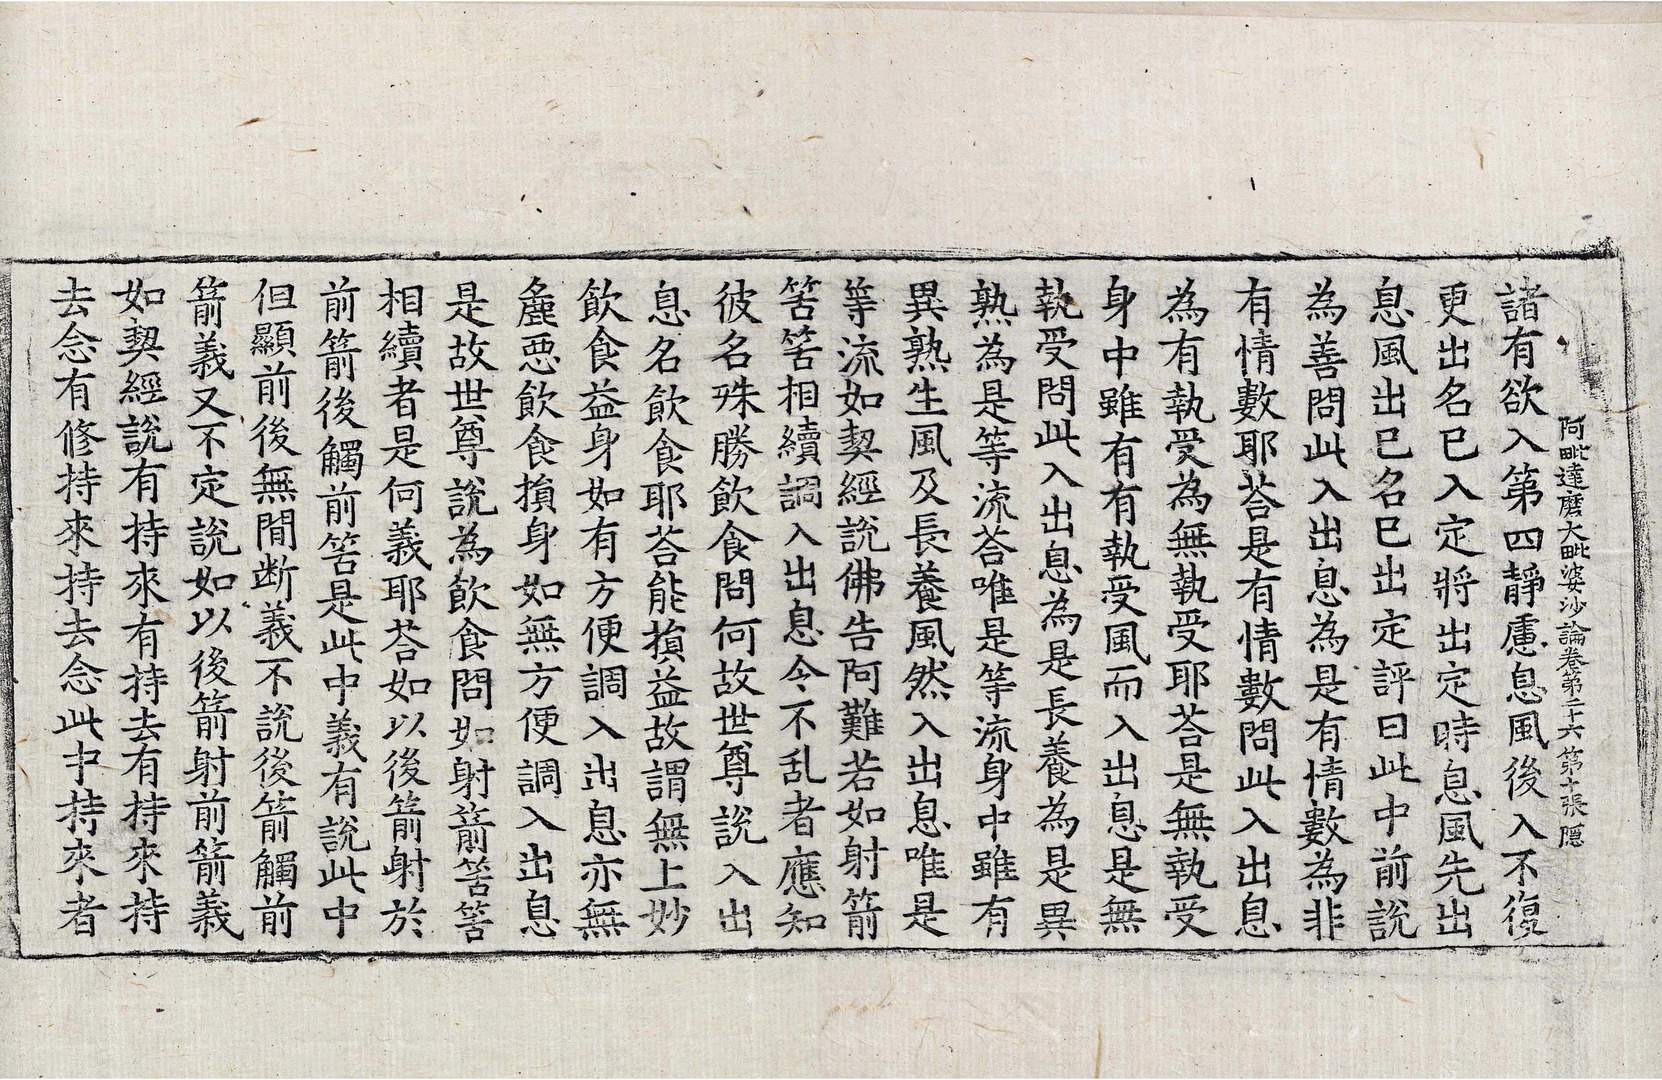 阿毗達磨大毗婆沙論卷第二十六 第十張 隱
諸有欲入第四靜慮息風後入不復
更出名已入定將出定時息風先出
息風出已名已出定評曰此中前說
為善問此入出息為是有情數為非
有情數耶荅是有情數問此入出息
為有執受為無執受耶荅是無執受
身中雖有有執受風而入出息是無
執受問此入出息為是長養為是異
熟為是等流荅唯是等流身中雖有
異熟生風及長養風然入出息唯是
等流如契經說佛告阿難若如射箭
筈筈相續調入出息令不乱者應知
彼名殊勝飲食問何故世尊說入出
息名飲食耶荅能損益故謂無上妙
飲食益身如有方便調入出息亦無
麁惡飲食損身如無方便調入出息
是故世尊說為飲食問如射箭筈筈
相續者是何義耶荅如以後箭射於
前箭後觸前筈是此中義有說此中
但顯前後無間断義不說後箭觸前
箭義又不定說如以後箭射前箭義
如契經說有持來有持去有持來持
去念有修持來持去念此中持來者